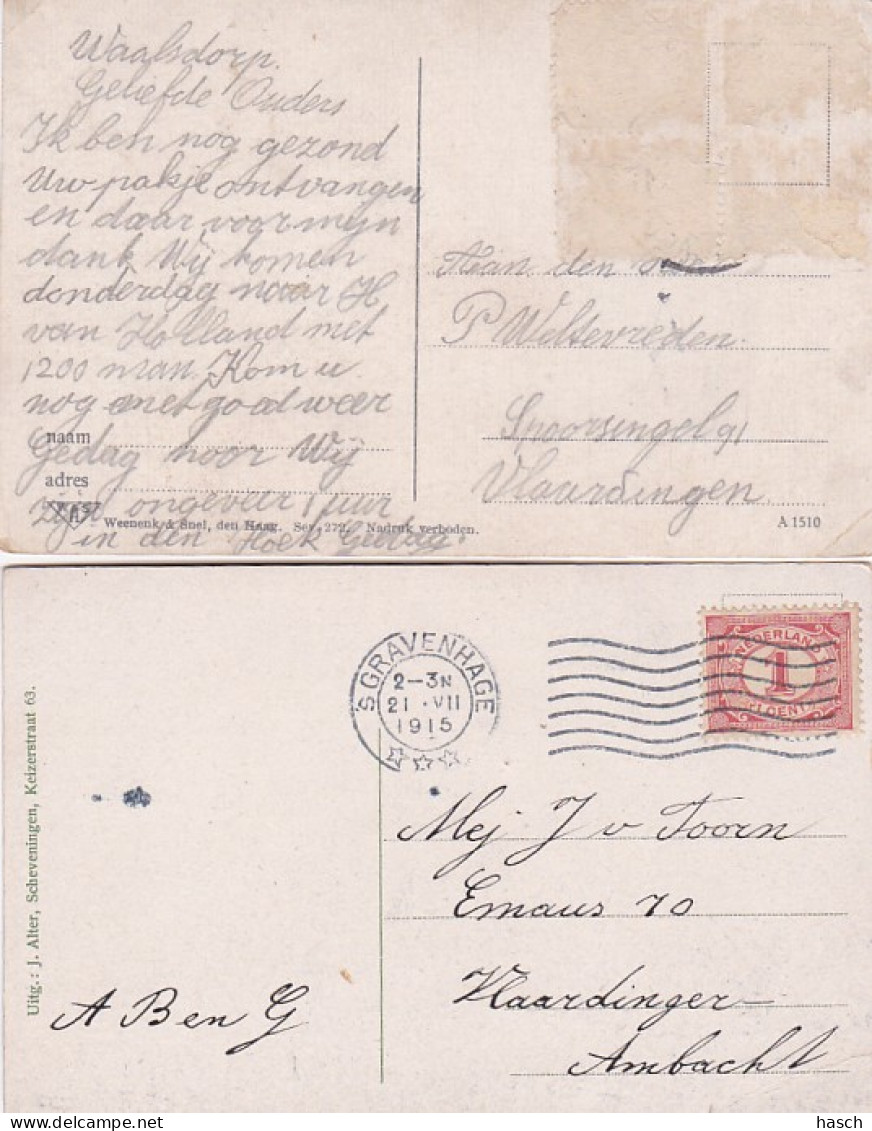 Waalsdorp.
Geliefde Ouders
Ik ben nog gezond
Uw pakje ontvangen
en daar voor mijn
dank Wij komen
donderdag naar H
van Holland met
1200 man. Kom u
nog met goed weer
naam
Gedag hoor Wij
adres
ongeveer 1 uur
Weenenk & Snel, den Haag. Sey. 272. Nadruk verboden.
in den Hoek
Aan den
P Weltevreden.
Spoorsingel 91
Vlaardingen.
A 1510
'S GRAVENHAGE
2-3N
21 · VII
1915
NEDERLAND
1
CENT
Mej J v Toorn
Emaus 70
Vlaardinger-
Ambacht
A B en G
Uitg.: J. Alter, Scheveningen, Keizerstraat 63.
hasch